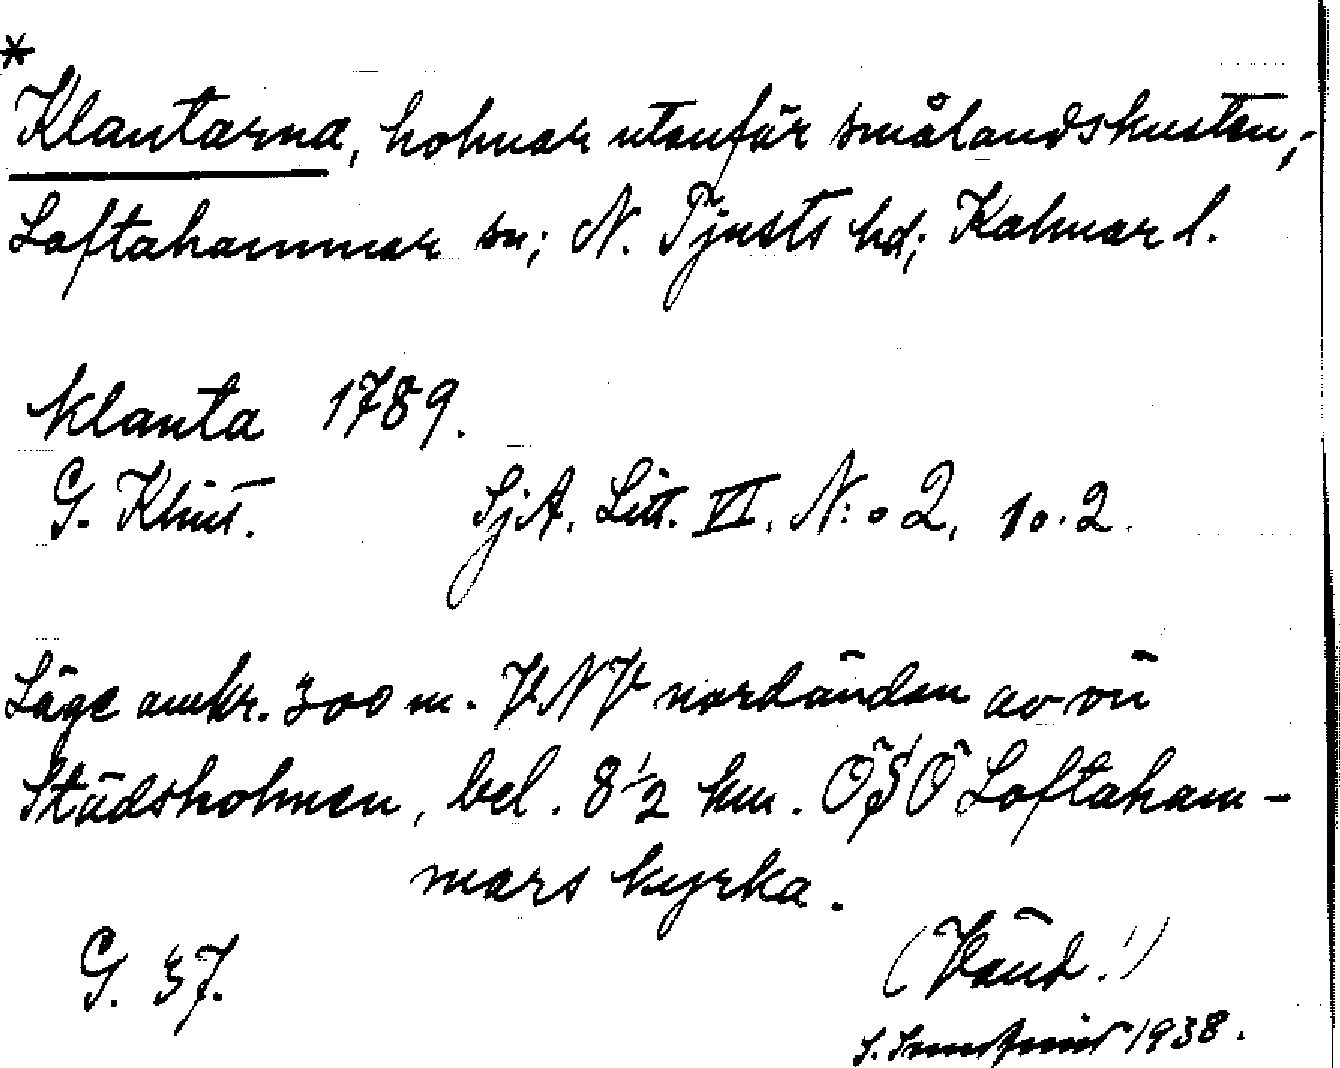 *
Klantarna, holmar utenför smålandskusten,-
Loftahammar sn; N. Tjusts hd; Kalmar l.
Klanta 1789.
G. Klint. SjA. Litt. VI. N:o 2, 10.2.
Läge omkr. 300 m. VNV nordänden av ön
Städsholmen, bel. 8 1/2 km. ÖSÖ Loftaham-
mars kyrka.
G. 37. (Vänd!)
S. 1938.